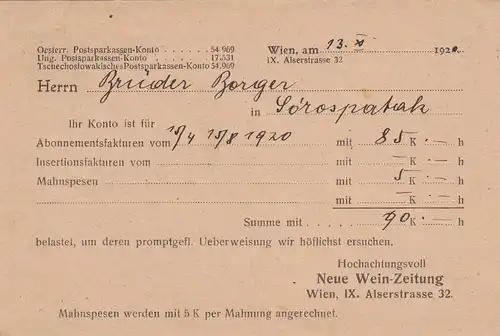 Oesterr. Postsparkassen-Konto . . . . . . 54 969
Ung. Postsparkassen-Konto . . . . . 17.531
Tschechoslowakisches Postsparkassen-Konto 54.969
Wien, am 13. XI 1920.
IX. Alserstrasse 32
Herrn Brüder Borger
in Sórospatak
Ihr Konto ist für
Abonnementsfakturen vom 15/4 15/8 1920 mit 85 K — h
Insertionsfakturen vom mit — K — h
Mahnspesen mit 5 K — h
mit — K — h
Summe mit 90 K — h
belastet, um deren promptgefl. Ueberweisung wir höflichst ersuchen.
Hochachtungsvoll
Neue Wein-Zeitung
Wien, IX. Alserstrasse 32.
Mahnspesen werden mit 5 K per Mahnung angerechnet.